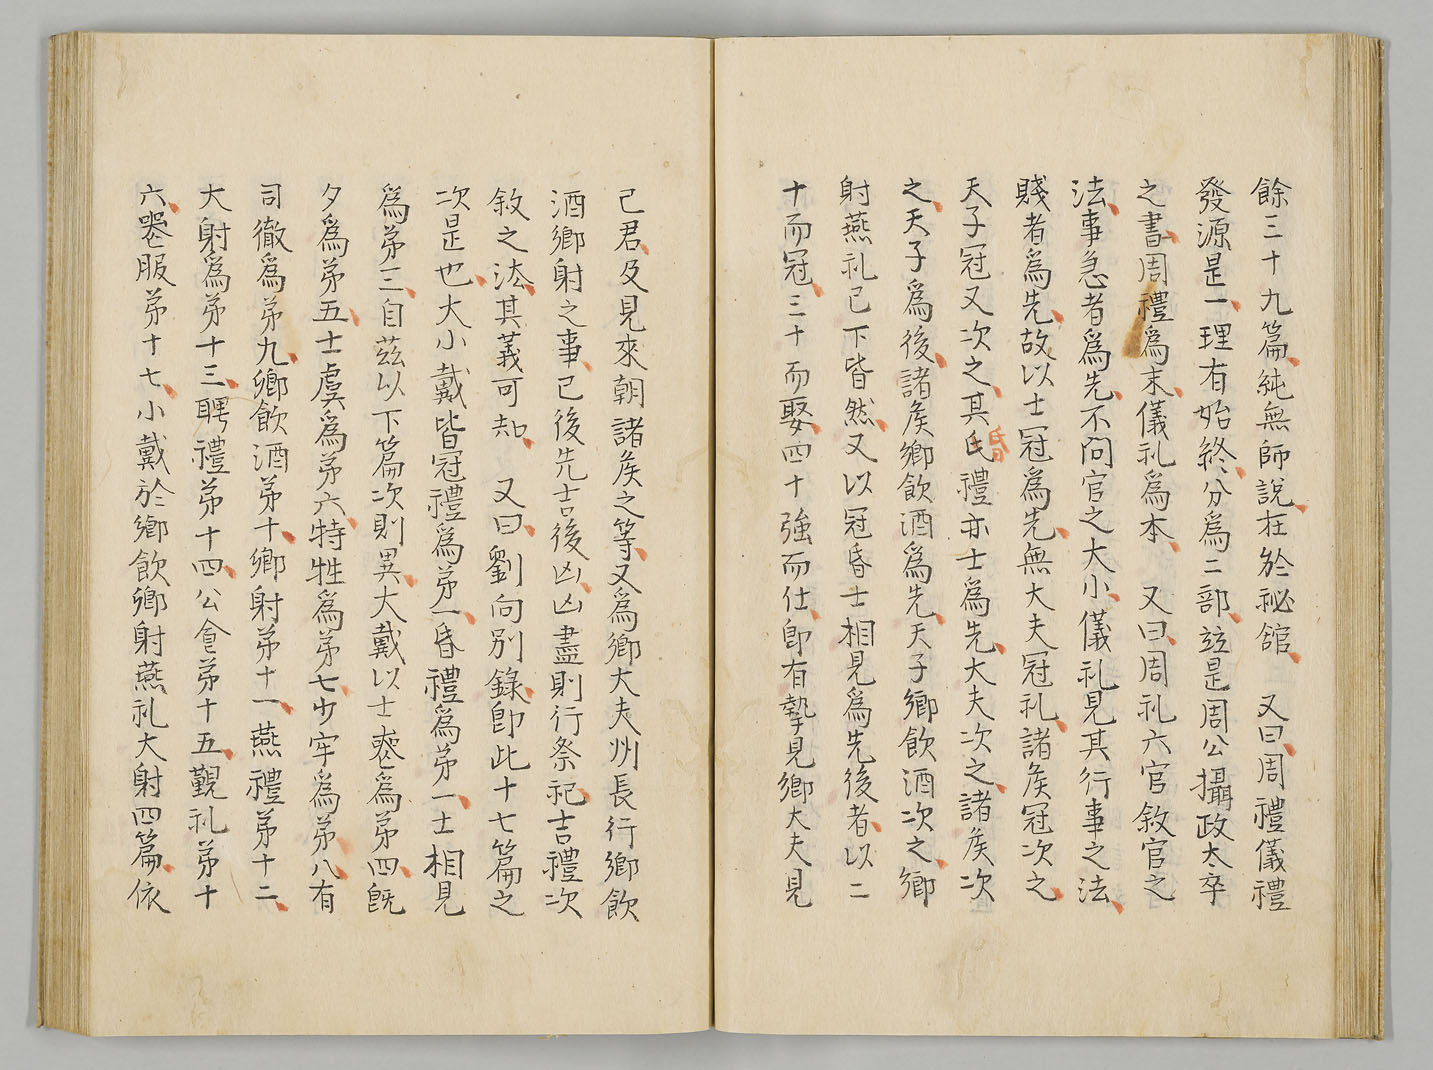 餘三十九篇純無師說在於祕館　又曰周禮儀禮
發源是一理有始終分爲二部竝是周公攝政太卒
之書周禮爲末儀礼爲本　又曰周礼六官敘官之
法事急者爲先不問官之大小儀礼見其行事之法
賤者爲先故以士冠爲先無大夫冠礼諸侯冠次之
天子冠又次之其氏禮亦士爲先大夫次之諸侯次
昏
之天子爲後諸侯鄉飲酒爲先天子鄉飲酒次之鄉
射燕礼已下皆然又以冠昏士相見爲先後者以二
十而冠三十而娶四十強而仕即有摯見鄉大夫見
己君及見來朝諸侯之等又爲鄉大夫州長行鄉飲
酒鄉射之事已後先吉後凶凶盡則行祭祀吉禮次
敘之法其義可知　又曰劉向別錄卽此十七篇之
次是也大小戴皆冠禮爲弟一昏禮爲弟一士相見
爲弟三自茲以下篇次則異大戴以士喪爲弟四旣
夕爲弟五士虞爲弟六特牲爲弟七少牢爲弟八有
司徹爲弟九鄉飲酒弟十鄉射弟十一燕禮弟十二
大射爲弟十三聘禮弟十四公食弟十五覲礼弟十
六喪服弟十七小戴於鄉飲鄉射燕礼大射四篇依